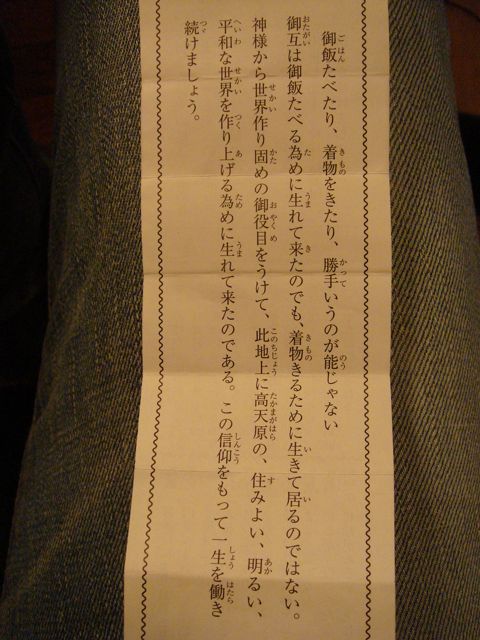 御飯たべたり、着物をきたり、勝手いうのが能じゃない
御互は御飯たべる為めに生れて来たのでも、着物きるために生きて居るのではない。
神様から世界作り固めの御役目をうけて、此地上に高天原の、住みよい、明るい、
平和な世界を作り上げる為めに生れて来たのである。この信仰をもって一生を働き
続けましょう。